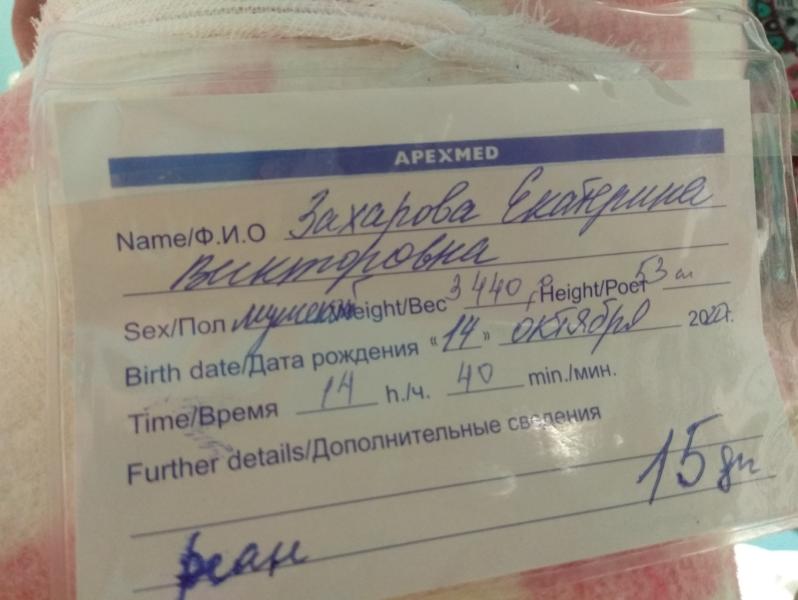 APEXMED
Name/Ф.И.О Захарова Екатерина
Викторовна
Sex/Пол мужской Weight/Вес 3 440, Height/Рост 53 см
Birth date/Дата рождения «14» октября 2022г.
Time/Время 14 h./ч. 40 min./мин.
Further details/Дополнительные сведения
15